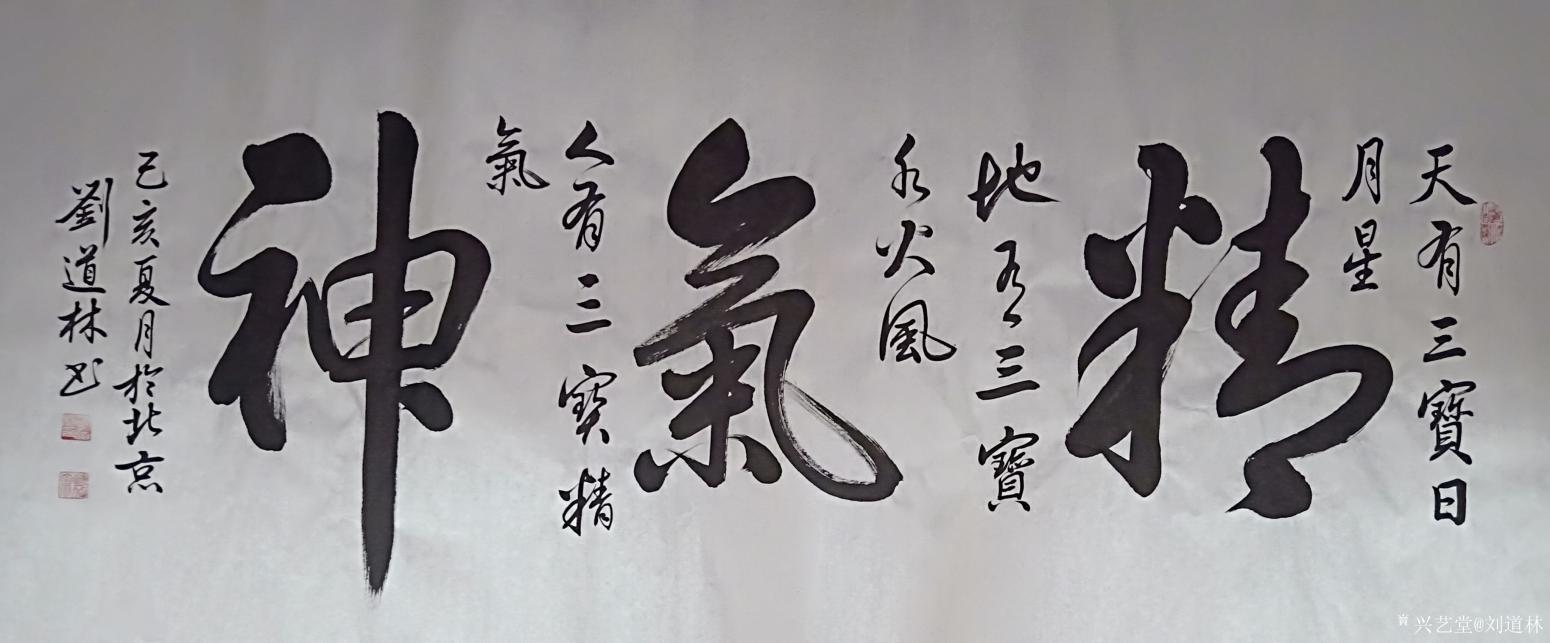 天有三寶日
月星
精
地有三寶
水火風
氣
人有三寶精
氣
神
己亥夏月於北京
劉道林书
兴艺堂@刘道林